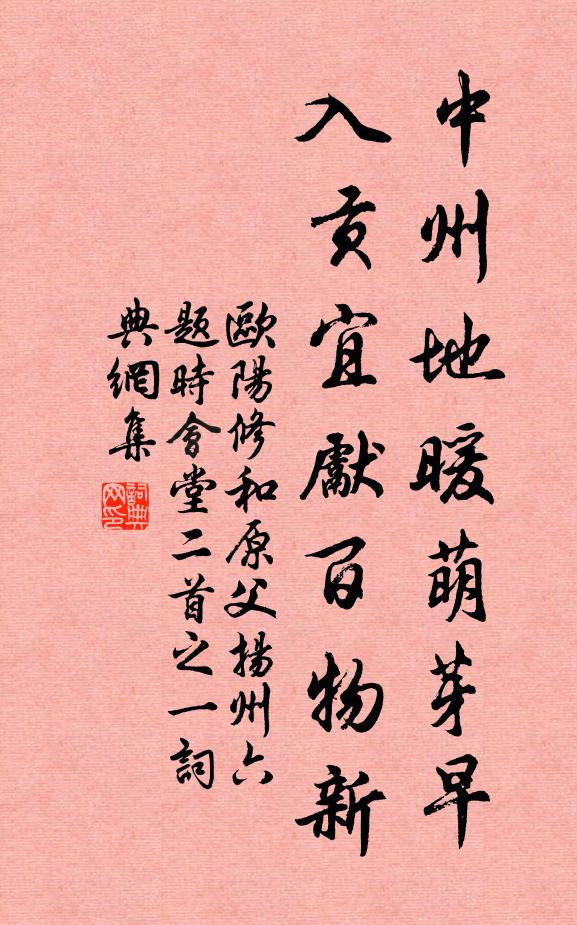 中州地暖萌芽早
入貢宜獻百物新
歐陽修和原父揚州六
題時會堂二首之一詞
典網集
詞典
网印